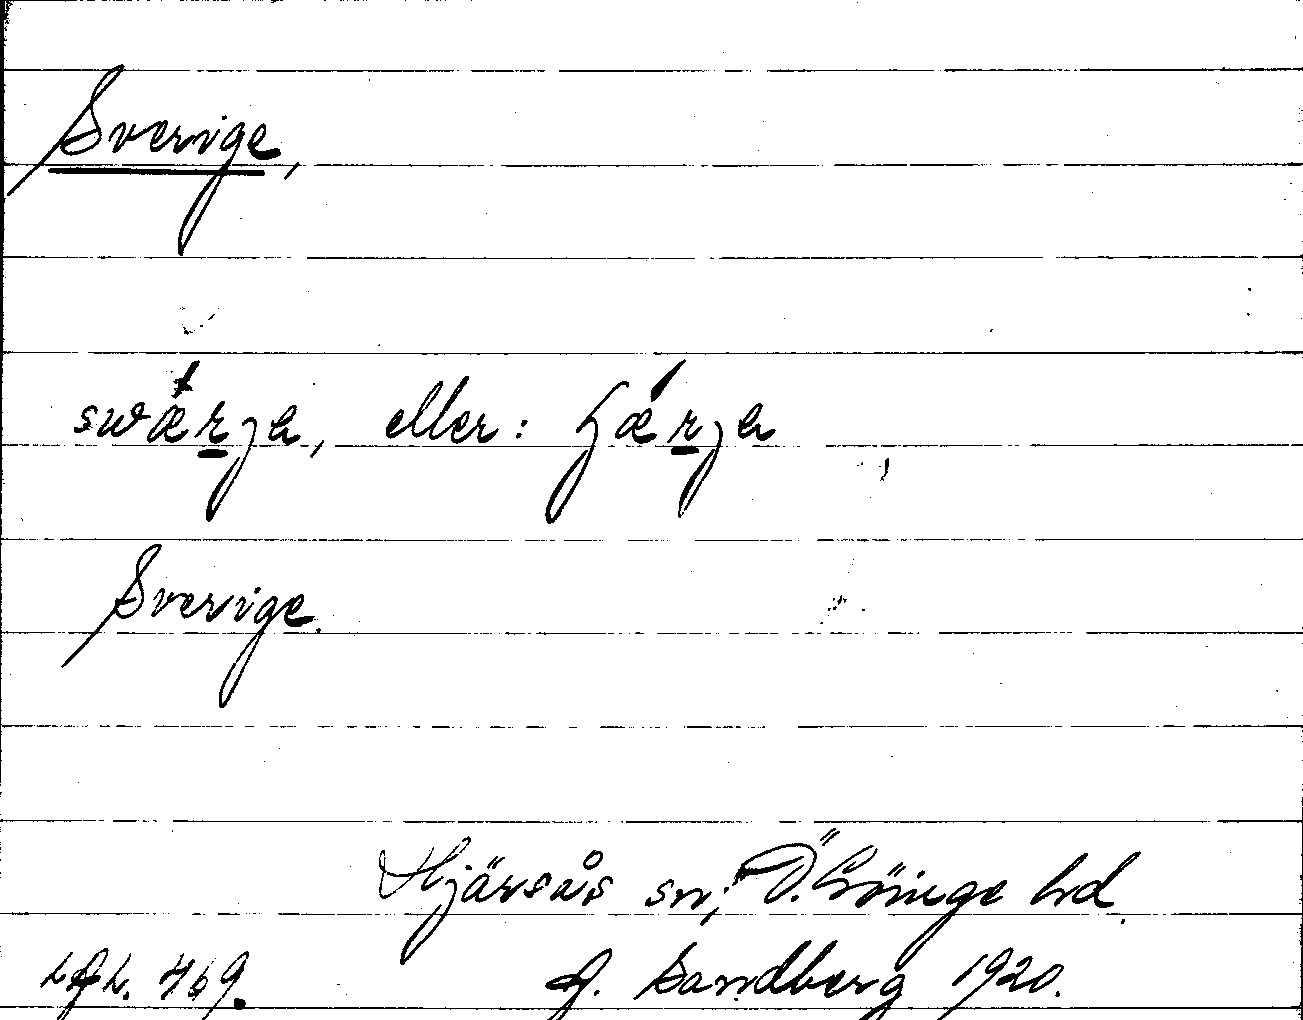 Sverige,
swǽrja, eller: hǽrja
Sverige.
Hjärsås sn, Ö. Göinge hd.
469. Sandberg 1920.